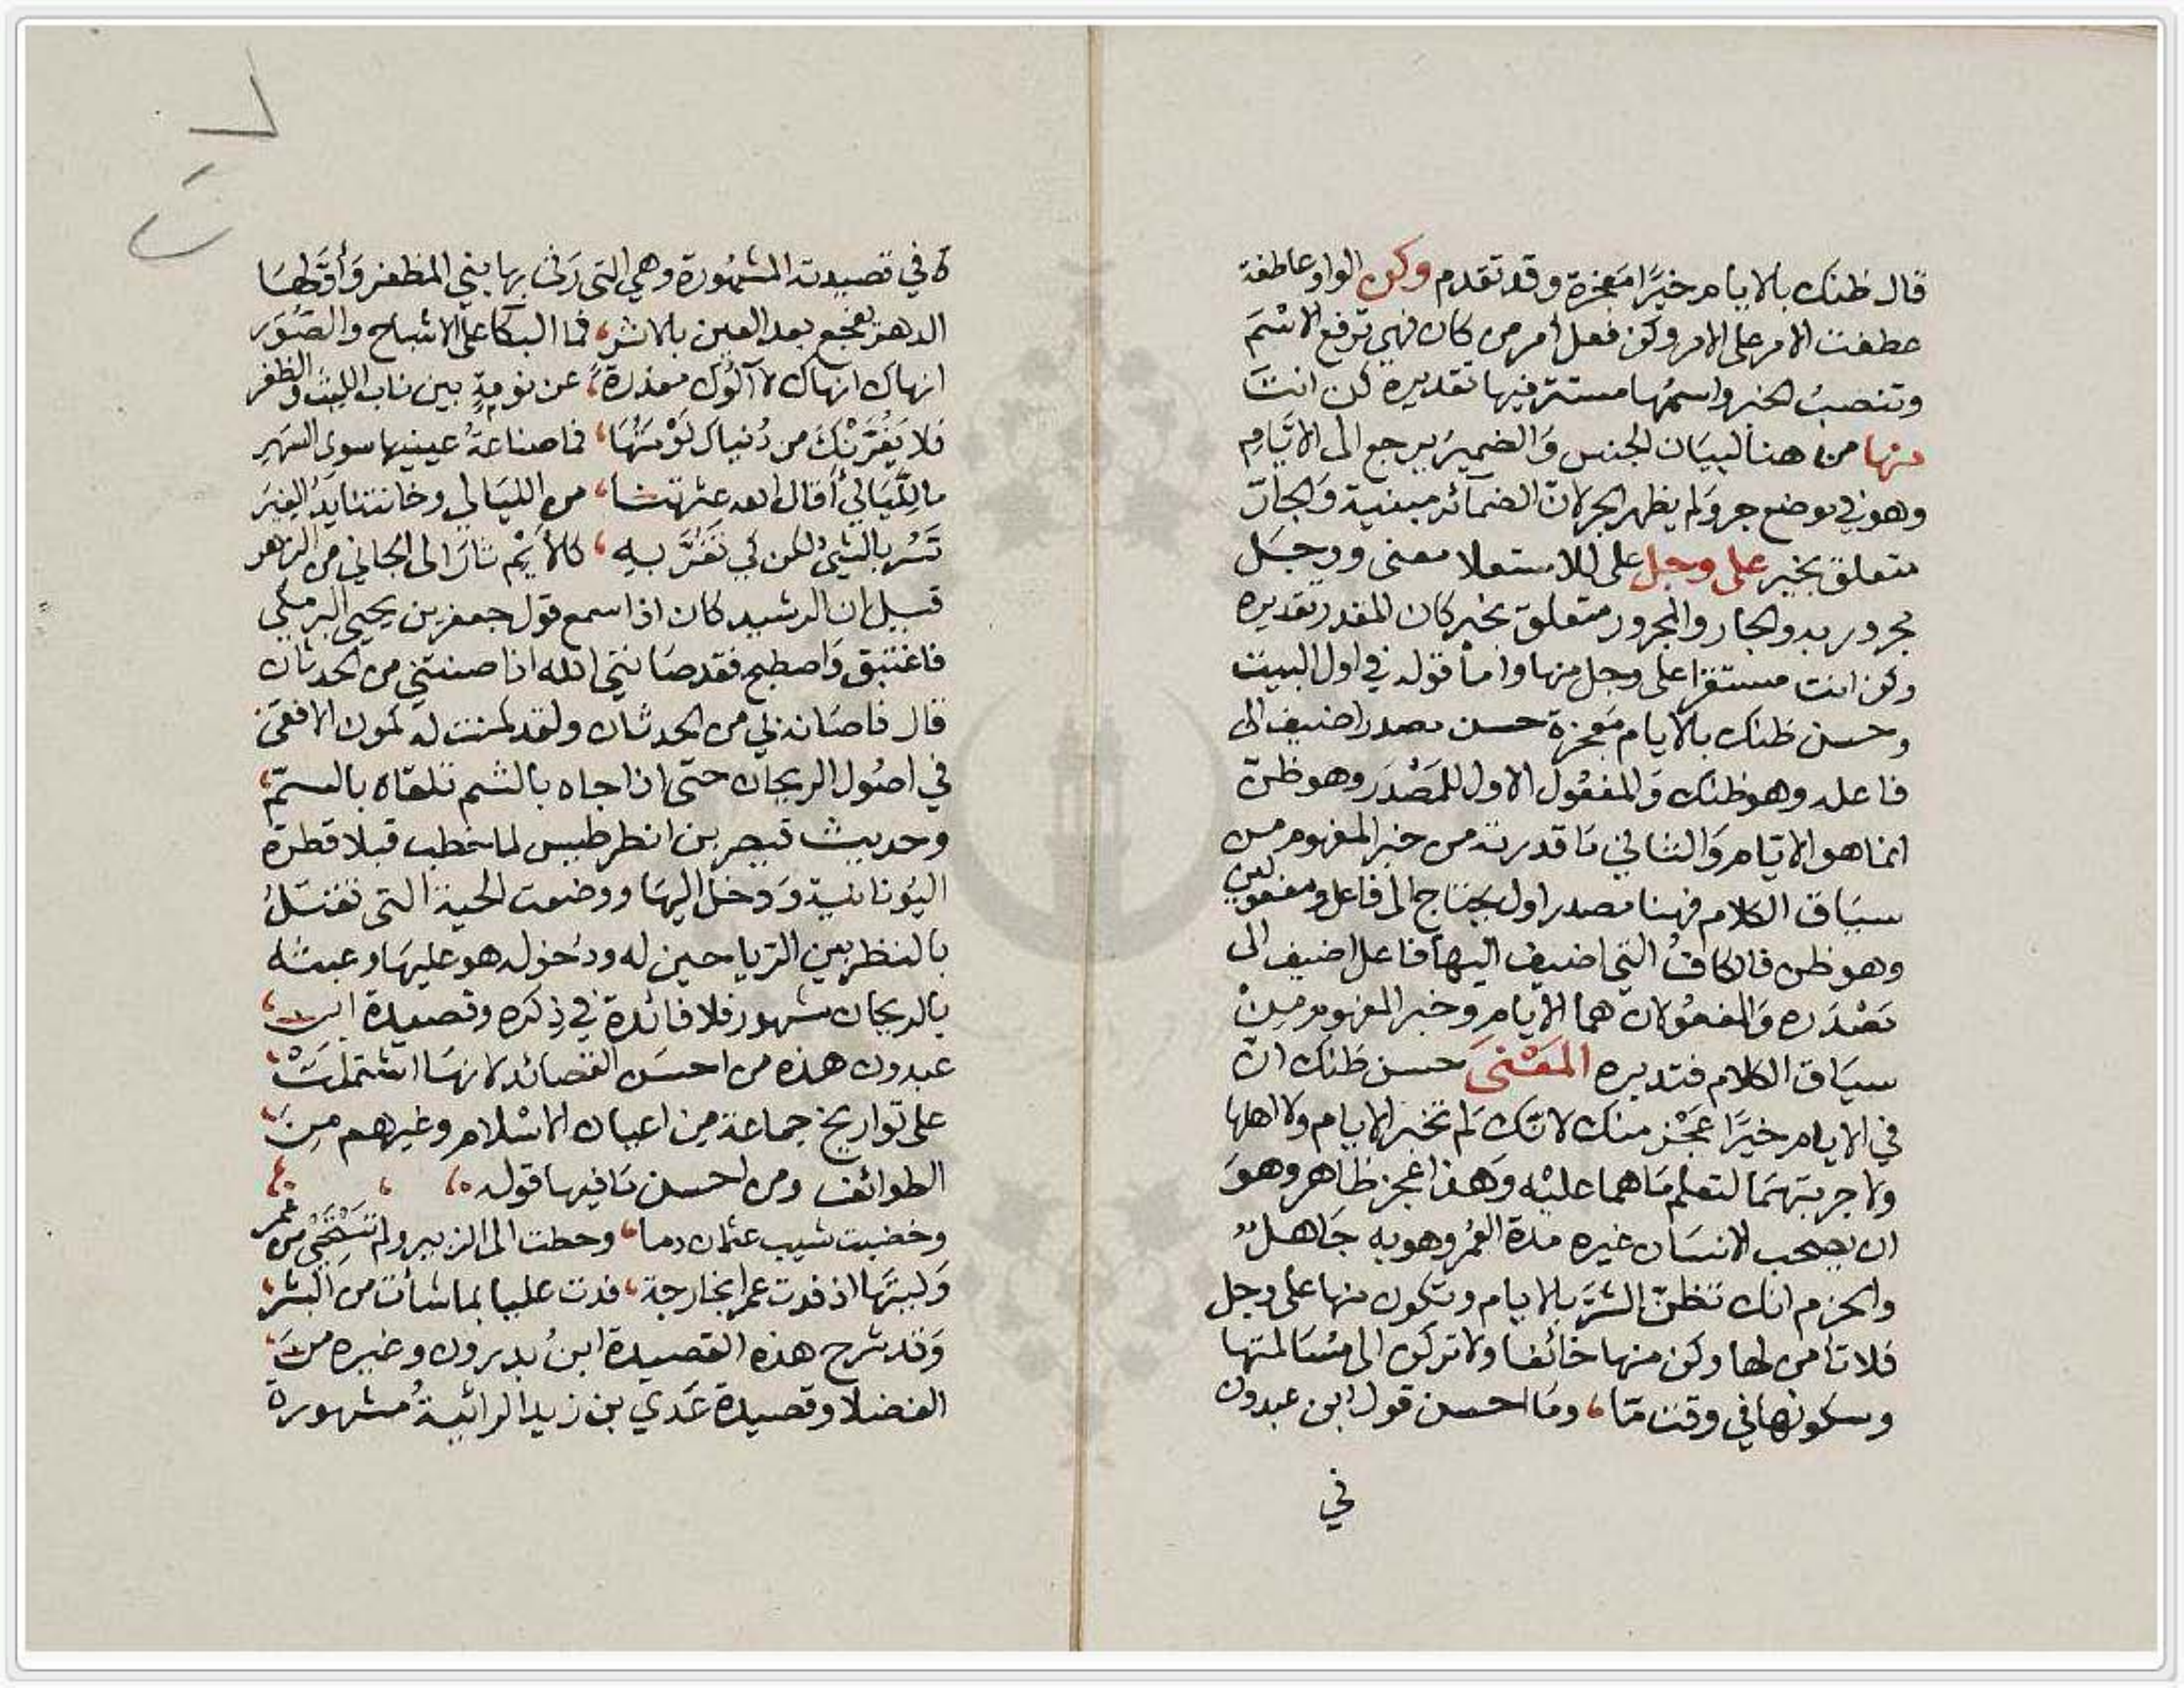 قال ظنك بالايام خيرًا معجزة وقد تقدم وكن الواو عاطفة
عطفت الامر على الامر وكن فعل امر من كان فهي ترفع الاسْمَ
وتنصبُ الخبر واسمُها مستتر فيها تقديره كن انتَ
منها من هنا لبيَان الجنس وَالضميرُ يرجع الى الايَّامِ
وهو في موضع جر وَلم يظهر الجر لانّ الضمآئر مبنية وَالجارّ
متعلق بخبر على وجل على للاستعلا معنى ووجَل
مجرور به والجار والمجرور متعلق بخبر كان المقدر تقديره
وكن انت مستقرا على وجل منها واما قوله في اول البيت
وحسن ظنك بالايام مَعجزة حسن مصدر اضيف الى
فاعله وهو ظنك وَالمفعُول الاول للمَصْدَر وهو ظنّ
انما هو الايّام وَالثاني مَا قدرته من خبر المفهوم من
سيَاق الكلام فهنا مصدر اول يحتاج الى فاعل ومفعولين
وهو ظن فالكافُ التي اضيف اليها فاعل اضيف الى
مَصْدَره وَالمفعُولان هما الايام وخبر المفهوم مِنْ
سيَاق الكلام فتدبره المَعْنىَ حسن ظَنك انّ
في الايام خيرًا عَجْز منك لانّك لم تخبر الايام ولا اهلها
ولا جربتهمَا لتعلم مَا هما عليْه وَهذا عجز ظاهر وهوَ
ان يصحب الانسَان غيره مدة العُمر وهو به جَاهلٌ
والحزم انك تظنّ الشرَّ بالايام وتكون منها على وجل
فلا تأمن لها وكن منها خائفا ولا تركن الى مسَالمتها
وسكونها في وقت مّا، ومَا احسن قول ابن عبدون
في
ه في قصيدته المشهُورة وهي التي رَثى بها بني المظفر وَأوّلها
الدهر يفجع بعد العين بالاثر، فما البكا على الاشباح والصّوَر
انهاك انهاك لا آلُوك معذرة، عن نومةٍ بين ناب الليث والظفر
فلا يَغُرَّنْكَ من دُنياك نَوْمَتُهَا، فما صناعةُ عينيها سوى السَهَرِ
ما لِلَّيَالي أقال الله عثرتنا، من الليَالي وخانتنا يَدُ الغِيَرِ
تَسُر بالشيْ لكن كي تَغُرَّ بهِ، كالأيْم ثارَ الى الجاني من الزهر
قيل ان الرشيد كان اذا سمع قول جعفر بن يحيى البرمكي
فاغتبق وَاصطبح فقد صَانني الله اذا صنتني من الحدثان
قال فاصَانه لي من الحدثان ولقد كمنت له كمون الافعَى
في اصُول الريحان حتى اذا جاه بالشم تلقاه بالسمّ،
وحديث قيصر بن انطرطيس لما خطب قبلاقطرة
اليُونانية وَدخل اليهَا ووضعت الحية التي تقتلُ
بالنظر بين الرياحين له ودخوله هو عليهَا وعبثه
بالريحان مشهور فلا فائدة في ذكره وقصيدة ابن
عبدون هذه من احسَن القصائد لانهَا اشتملتْ
على تواريخ جماعة من اعيان الاسْلام وغيرهم مِنَ
الطوائف ومن احسن مَا فيها قوله
وخضبت شيب عثمان دما، وخطت الى الزبير ولم تَسْتَحْي من عُمر
وَليتَها اذ فدت عمرا بخارجة، فدت عليا بما شأت من البشر
وَقد شرح هذه القصيدة ابنُ بدرون وغيره منَ
الفضلا وقصيدة عَدي بن زيد الرائيةُ مشهورة